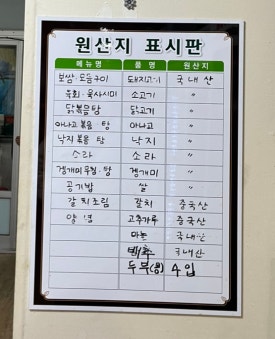 원산지 표시판
메뉴명 품명 원산지
보쌈·모듬구이 돼지고기 국내산
육회·육사시미 소고기 〃
닭볶음탕 닭고기 〃
아나고 볶음·탕 아나고 〃
낙지볶음·탕 낙지 〃
소라 소라 〃
갱개미무침·탕 갱개미 〃
공기밥 쌀 〃
갈치조림 갈치 중국산
양념 고추가루 중국산
마늘 국내산
배추 국내산
두부(콩) 수입